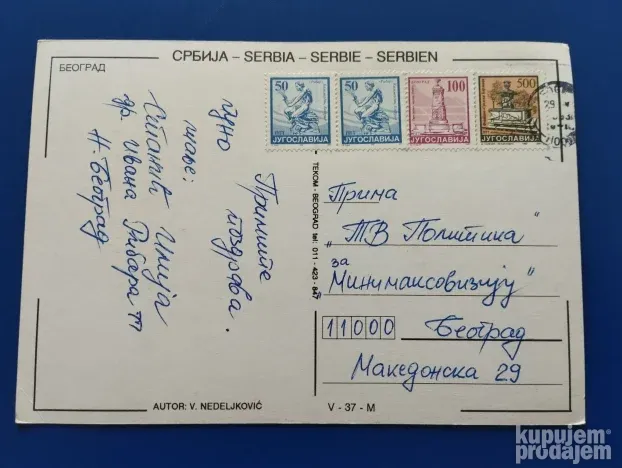 СРБИЈА – SERBIA – SERBIE – SERBIEN
БЕОГРАД
50
ЈУГОСЛАВИЈА
50
ЈУГОСЛАВИЈА
100
ЈУГОСЛАВИЈА
500
ЈУГОСЛАВИЈА
Примите
пуно
поздрава.
шаље:
Илија
др Ивана Рибара
Н. Београд
TEKOM - BEOGRAD tel: 011 - 423 - 847
Прима
"ТВ Политика"
за
Минимаксовизију"
11000 Београд
Македонска 29
AUTOR: V. NEDELJKOVIĆ
V - 37 - M
kupujem
prodajem